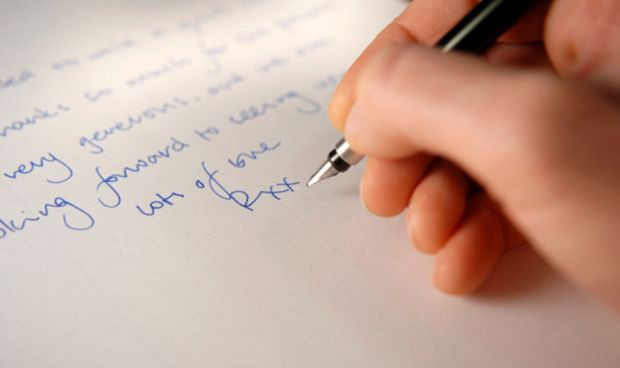 to write a
hanks so much for the
very generous, and we are
oking forward to seeing
lots of love
Rxx